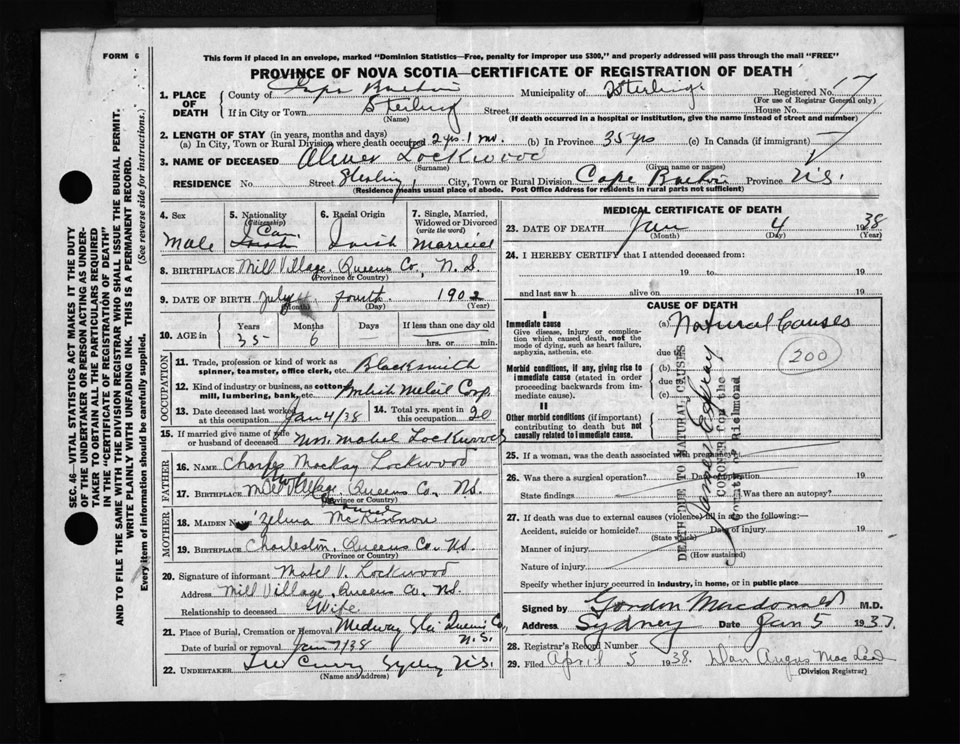 FORM 6
This form if placed in an envelope, marked "Dominion Statistics—Free, penalty for improper use $300," and properly addressed will pass through the mail "FREE"
PROVINCE OF NOVA SCOTIA—CERTIFICATE OF REGISTRATION OF DEATH
1. PLACE OF DEATH
County of Cape Breton Municipality of Registered No. 17
(For use of Registrar General only)
If in City or Town Sterling Street House No.
(Name) (If death occurred in a hospital or institution, give the name instead of street and number)
2. LENGTH OF STAY (in years, months and days)
(a) In City, Town or Rural Division where death occurred 2 yrs. 1 mo. (b) In Province 35 yrs (c) In Canada (if immigrant)
3. NAME OF DECEASED Oliver Lockwood
(Surname) (Given name or names)
RESIDENCE No. Street Sterling City, Town or Rural Division Cape Breton Province N.S.
(Residence means usual place of abode. Post Office Address for residents in rural parts not sufficient)
4. Sex Male
5. Nationality (Citizenship) Can. Irish
6. Racial Origin Irish
7. Single, Married, Widowed or Divorced (write the word) Married
8. BIRTHPLACE Mill Village, Queens Co., N.S.
(Province or Country)
9. DATE OF BIRTH July fourth 1902
(Month) (Day) (Year)
10. AGE in Years 35 Months 6 Days If less than one day old hrs. or min.
OCCUPATION
11. Trade, profession or kind of work as spinner, teamster, office clerk, etc. Blacksmith
12. Kind of industry or business, as cotton mill, lumbering, bank, etc. British Metal Corp.
13. Date deceased last worked at this occupation Jan 4/38
14. Total yrs. spent in this occupation 20
15. If married give name of wife or husband of deceased Mrs. Mabel Lockwood
FATHER
16. NAME Charles MacKay Lockwood
17. BIRTHPLACE Mill Village, Queens Co., N.S.
(Province or Country)
MOTHER
18. MAIDEN NAME Zelma McKinnon
19. BIRTHPLACE Charleston, Queens Co. N.S.
(Province or Country)
20. Signature of informant Mabel V. Lockwood
Address Mill Village, Queens Co. N.S.
Relationship to deceased Wife
21. Place of Burial, Cremation or Removal Medway Queens Co., N.S.
Date of burial or removal Jan 7/38
22. UNDERTAKER Curry Sydney N.S.
(Name and Address)
MEDICAL CERTIFICATE OF DEATH
23. DATE OF DEATH Jan 4 1938
(Month) (Day) (Year)
24. I HEREBY CERTIFY that I attended deceased from:
19 to 19
and last saw h alive on 19
CAUSE OF DEATH
I
Immediate cause
Give disease, injury or complication which caused death, not the mode of dying, such as heart failure, asphyxia, asthenia, etc.
(a) Natural Causes
due to
200
Morbid conditions, if any, giving rise to immediate cause (stated in order proceeding backwards from immediate cause).
(b)
due to
(c)
II
Other morbid conditions (if important) contributing to death but not causally related to immediate cause.
DEATH DUE TO NATURAL CAUSES
CORONER for the
County of Richmond
25. If a woman, was the death associated with pregnancy?
26. Was there a surgical operation? Date of operation 19
State findings Was there an autopsy?
27. If death was due to external causes (violence) fill in also the following:—
Accident, suicide or homicide? Date of injury 19
(State which)
Manner of injury
(How sustained)
Nature of injury
Specify whether injury occurred in industry, in home, or in public place
Signed by Gordon Macdonald M.D.
Address Sydney Date Jan 5 1937
28. Registrar's Record Number
29. Filed April 5 1938. Dan Angus MacLeod
(Division Registrar)
SEC. 46—VITAL STATISTICS ACT MAKES IT THE DUTY
OF THE UNDERTAKER OR PERSON ACTING AS UNDER-
TAKER TO OBTAIN ALL THE PARTICULARS REQUIRED
IN THE "CERTIFICATE OF REGISTRATION OF DEATH"
AND TO FILE THE SAME WITH THE DIVISION REGISTRAR WHO SHALL ISSUE THE BURIAL PERMIT.
WRITE PLAINLY WITH UNFADING INK. THIS IS A PERMANENT RECORD.
Every item of information should be carefully supplied. (See reverse side for instructions.)